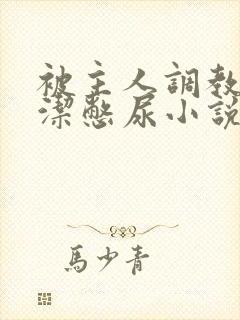 被主人調教
潔憋尿小說
馬少青